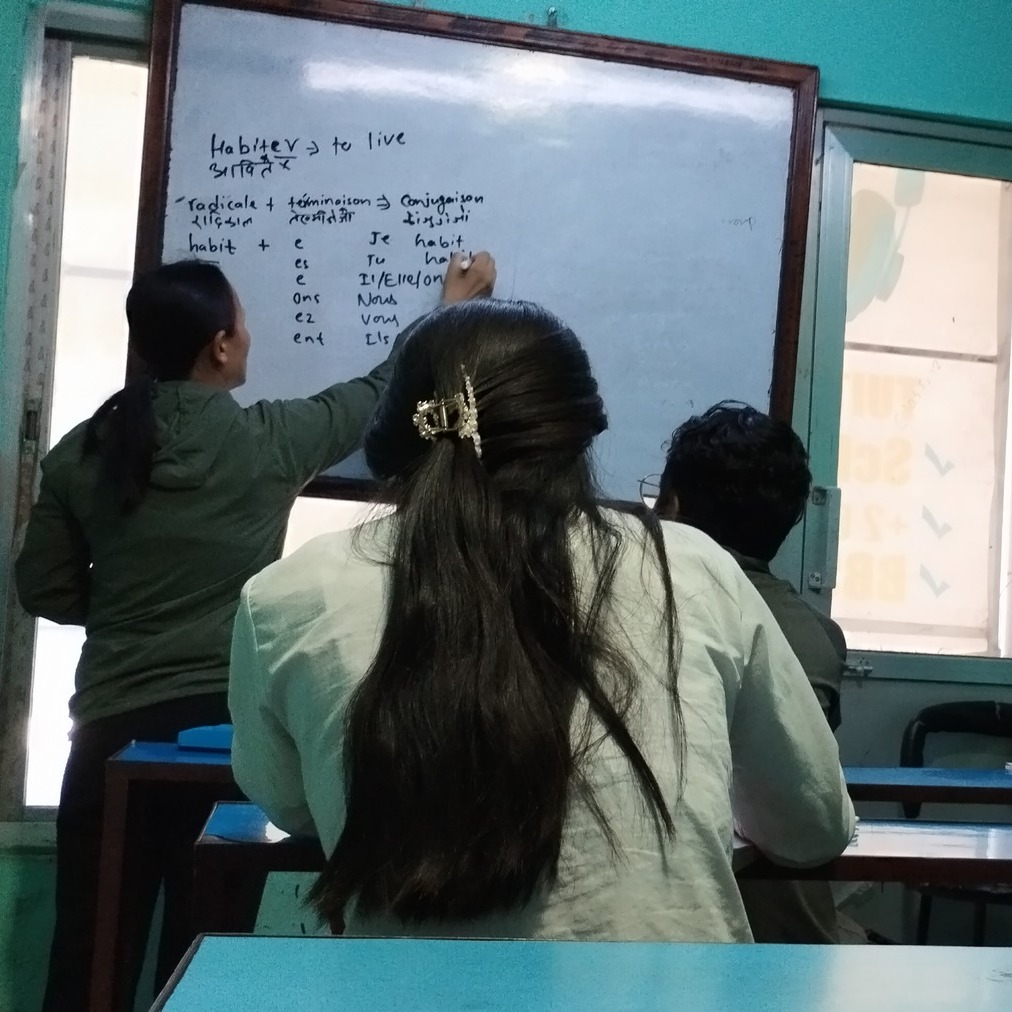 Habiter ⇒ to live
आविते
radicale + términaison ⇒ Conjugaison
रादिकाल
habit + e Je habit
es Tu
e Il/Elle/on
ons Nous
ez Vous
ent Ils
Sc
+2
BB